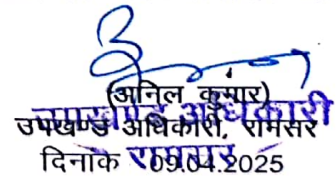 (अनिल कुमार)
उपखण्ड अधिकारी
उपखण्ड अधिकारी, रामसर
रामसर
दिनांक 09.04.2025